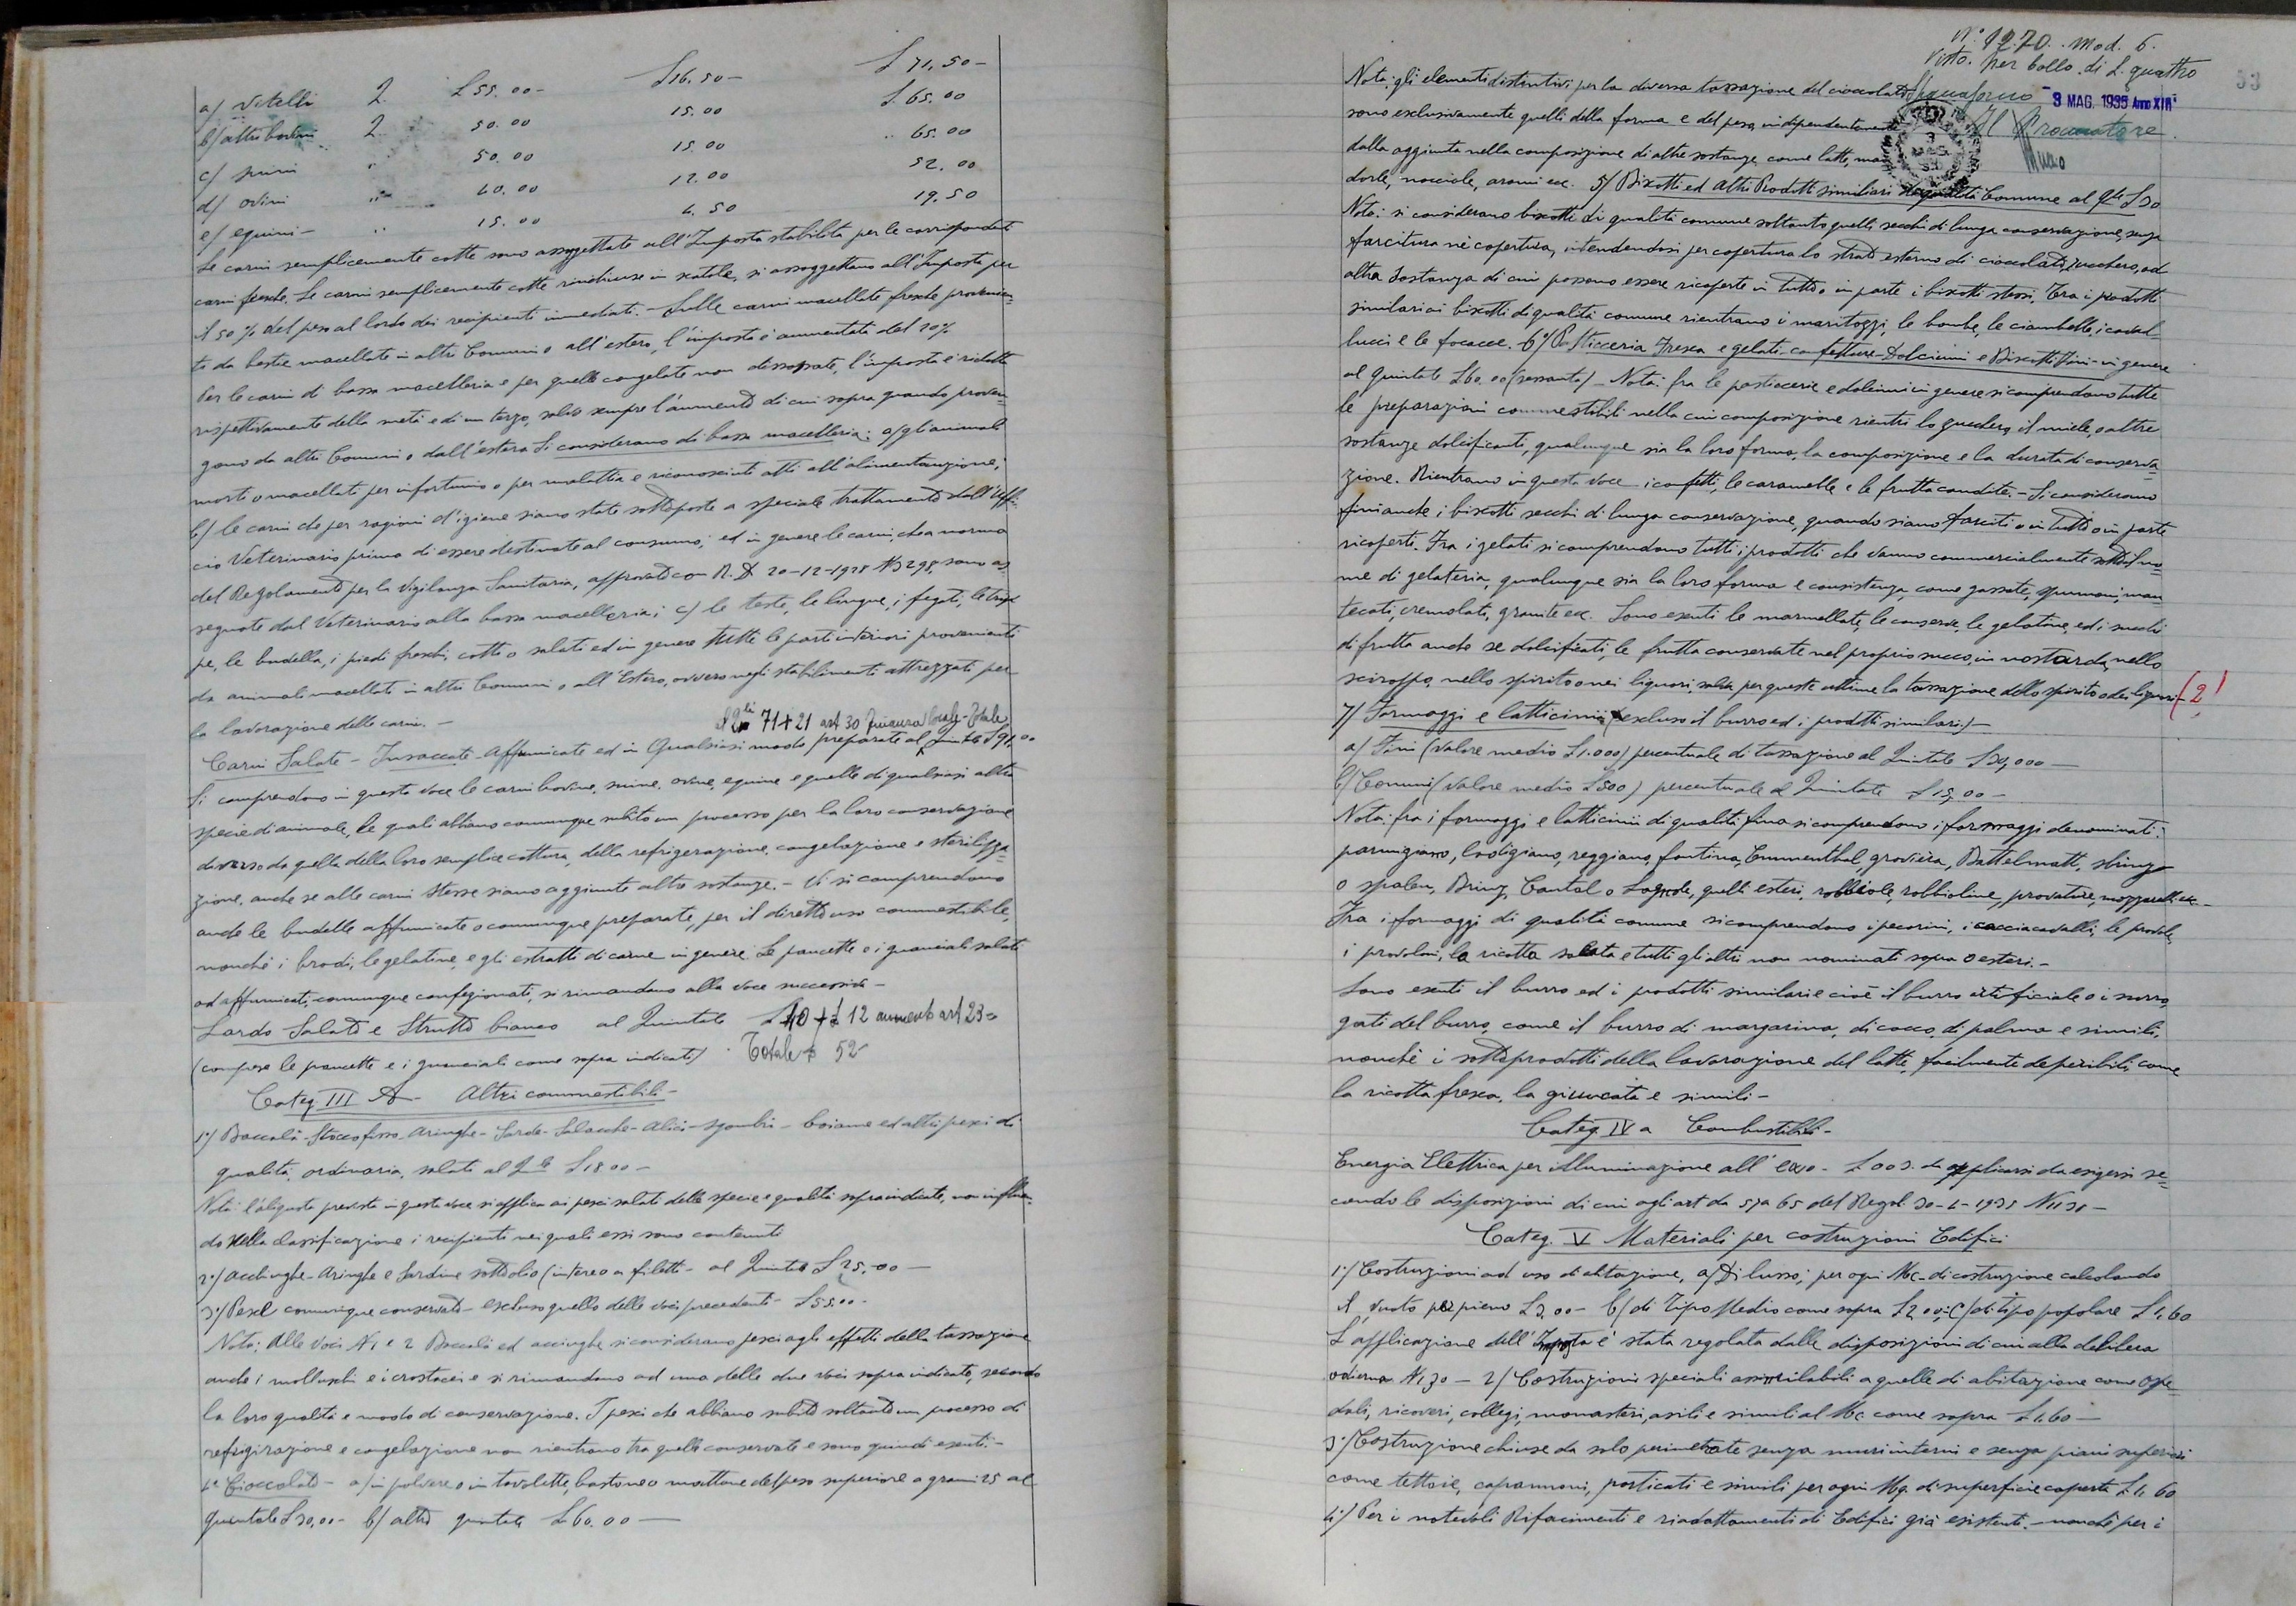 a) Vitelli 2. £ 55.00- £ 16.50- £ 71,50-
b) altri bovini 2. 50.00 15.00 £. 65.00
c) suini " 50.00 15.00 " 65.00
d) ovini " 40.00 12.00 52.00
e) equini- " 15.00 4.50 19.50
Le carni semplicemente cotte sono assoggettate all'Imposta stabilita per le corrispondenti
carni fresche. Le carni semplicemente cotte rinchiuse in scatole, si assoggettano all'Imposta per
il 50% del peso al lordo dei recipienti immediati. - Sulle carni macellate fresche provenien=
ti da bestie macellate in altri Comuni o all'estero, l'imposta è aumentata del 20%
Per le carni di bassa macelleria e per quelle congelate non dissossate, l'imposta è ridotta
rispettivamente della metà e di un terzo, salvo sempre l'aumento di cui sopra quando proven=
gono da altri Comuni o dall'estero. Si considerano di bassa macelleria: a) gli animali
morti o macellati per infortunio o per malattia e riconosciuti atti all'alimentazione;
b) le carni che per ragioni d'igiene siano state sottoposte a speciale trattamento dall'Uffi-
cio Veterinario prima di essere destinate al consumo; ed in genere le carni, che a norma
del Regolamento per la Vigilanza Sanitaria, approvato con R. D. 20-12-1928 N 3298, sono as=
segnate dal Veterinario alla bassa macelleria; c) le teste, le lingue, i fegati, le trip
pe, le budella, i piedi freschi, cotti o salati ed in genere tutte le parti inferiori provenienti
da animali macellati in altri Comuni o all'Estero, ovvero negli stabilimenti attrezzati per
la lavorazione delle carni. -
71+21 art 30 finanza locale-Totale
Carni Salate - Insaccate - Affumicate ed in Qualsiasi modo preparate al Quintale £ 91.00
Si comprendono in questa voce le carni bovine, suine, ovine, equine e quelle di qualsiasi altra
specie di animale, le quali abbiano comunque subito un processo per la loro conservazione
diverso da quello della loro semplice cottura, della refrigerazione, congelazione e sterilizza=
zione, anche se alle carni stesse siano aggiunte altre sostanze. - Vi si comprendono
anche le budella affumicate o comunque preparate, per il diretto uso commestibile,
nonchè i brodi, le gelatine, e gli estratti di carne in genere. Le pancette e i guanciali salati
od affumicati, comunque confezionati, si rimandano alla voce successiva -
Lardo Salato e Strutto bianco al Quintale £ 40 + £ 12 aumento art 23=
(comprese le pancette e i guanciali come sopra indicati) Totale £ 52-
Categ. III A- Altri commestibili-
1°) Baccalà - Stoccofisso - Aringhe - Sarde - Salacche - Alici - sgombri - boiame ed altri pesci di
qualità, ordinaria, salati al Q.le £ 18.00 -
Nota: l'aliquota prevista in questa voce si applica ai pesci salati delle specie e qualità sopraindicate, non influen-
do nella classificazione i recipienti nei quali essi sono contenuti
2°) Acciughe - Aringhe e Sardine sottolio (intere o a filetti - al Quintale £ 25,00 -
3°) Pesce comunque conservato - escluso quello delle voci precedenti - £ 55.00-
Nota: Alle voci N 1 e 2 Baccalà ed acciughe si considerano pesci agli effetti della tassazione
anche i molluschi e i crostacei e si rimandano ad una delle due voci sopra indicate, secondo
la loro qualità e modo di conservazione. I pesci che abbiano subito soltanto un processo di
refrigirazione e congelazione non rientrano tra quelle conservate e sono quindi esenti. -
4° Cioccolato - a) in polvere o in tavolette, bastone o mattone del peso superiore a grami 25 al
quintale £ 30,00- b) altro quintale £ 60.00 -
N° 1270. mod. 6.
Visto. per bollo di £. quattro
33
3 MAG. 1935 Anno XIII
Il Procuratore
Nota: gli elementi distintivi per la diversa tassazione del cioccolato
sono esclusivamente quelli della forma e del peso, indipendentemente
dalla aggiunta nella composizione di altre sostanze come latte, man
dorle, nocciole, aromi ecc. 5) Biscotti ed altri Prodotti similiari di qualità Comune al Q.le £ 30
Nota: si considerano biscotti di qualità comune soltanto quelli secchi di lunga conservazione, senza
farcitura nè copertura, intendendosi per copertura lo strato esterno di cioccolato, zucchero, od
altra sostanza di cui possano essere ricoperte in tutto o in parte i biscotti stessi. Tra i prodotti
similari ai biscotti di qualità comune rientrano i maritozzi, le bombe, le ciambelle, i caval-
lucci e le focacce. 6°) Pasticceria Fresca e gelati - confetture - Dolciumi e Biscotti Fini - in genere
al Quintale £ 60,00 (sessanta) - Nota: fra le pasticcerie e dolciumi in genere si comprendono tutte
le preparazioni commestibili nella cui composizione rientri lo zucchero, il miele, o altre
sostanze dolcificanti, qualunque sia la loro forma, la composizione e la durata di conserva=
zione. Rientrano in questa voce i confetti, le caramelle e le frutta candite. - Si considerano
fini anche i biscotti secchi di lunga conservazione, quando siano farciti o in tutto o in parte
ricoperti. Fra i gelati si comprendono tutti i prodotti che vanno commercialmente sotto il no=
me di gelateria, qualunque sia la loro forma e consistenza, come gassate, spumoni, man
tecati, cremolati, granite ecc. Sono esenti le marmellate, le conserve, le gelatine, ed i succhi
di frutta anche se dolcificati, le frutta conservate nel proprio succo, in mostarda, nello
sciroppo, nello spirito o nei liquori, salva per queste ultime la tassazione dello spirito o dei liquori - (2!
7) Formaggi e latticinii (escluso il burro ed i prodotti similari.) -
a) Fini (valore medio £ 1.000) percentuale di tassazione al Quintale £ 30,000 -
b) Comuni (valore medio £ 500) percentuale al Quintale £ 15,00 -
Nota: fra i formaggi e latticinii di qualità fina si comprendono i formaggi denominati:
parmigiano, lodigiano, reggiano, fontina, Emmenthal, groviera, Battelmatt, sbrinz
o spalen, Brinz, Cantal o quelli esteri, robbiole, robbioline, provature, mozzarelle ecc -
Fra i formaggi di qualità comune si comprendono i pecorini, i cacciacavalli, le provole,
i provoloni, la ricotta salata e tutti gli altri non nominati sopra o esteri. -
Sono esenti il burro ed i prodotti similari e cioè il burro artificiale o i surro,
gati del burro, come il burro di margarina, di cocco, di palma e simili,
nonchè i sottoprodotti della lavorazione del latte facilmente deperibili come
la ricotta fresca, la giuncata e simili -
Categ. IV a Combustibili -
Energia Elettrica per illuminazione all' da applicarsi da esigersi se=
condo le disposizioni di cui agli art da 57 a 65 del Regol. 30-4-1935 N 1138 -
Categ. V Materiali per costruzioni Edifici
1°) Costruzioni ad uso di abitazione, a) Di lusso; per ogni Mc. di costruzione calcolando
il vuoto per pieno £ 3,00 - b) di Tipo Medio come sopra £ 2,00; c) di tipo popolare £ 1,60
L'applicazione dell'Imposta è stata regolata dalle disposizioni di cui alla delibera
odierna N 130 - 2) Costruzioni speciali assimilabili a quelle di abitazione come ospe=
dali, ricoveri, collegi, monasteri, asili e simili al Mc. come sopra £ 1.60 -
3°) Costruzione chiuse da solo perimetrate senza muri interni e senza piani superiori
come tettoie, capannoni, porticati e simili per ogni Mq. di superficie coperta £ 1. 60
4°) Per i notevoli Rifacimenti e riadattamenti di Edifici già esistenti. - nonchè per i